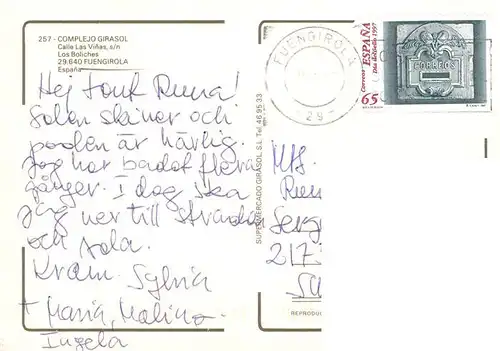 257 - COMPLEJO GIRASOL
Calle Las Viñas, s/n
Los Boliches
29.640 FUENGIROLA
España
Hej tant Runa!
Solen skiner och
poolen är härlig.
Jag har badat flera
gånger. I dag ska
jag ner till stranden
och sola.
Kram. Sylvia
+ Maria, Malin o.
Ingela
SUPERMERCADO GIRASOL S.L. Tel. 46 95 33
FUENGIROLA
29
Correos ESPAÑA
Día del Sello 1997
65
CORREOS
Runa
217
REPRODU